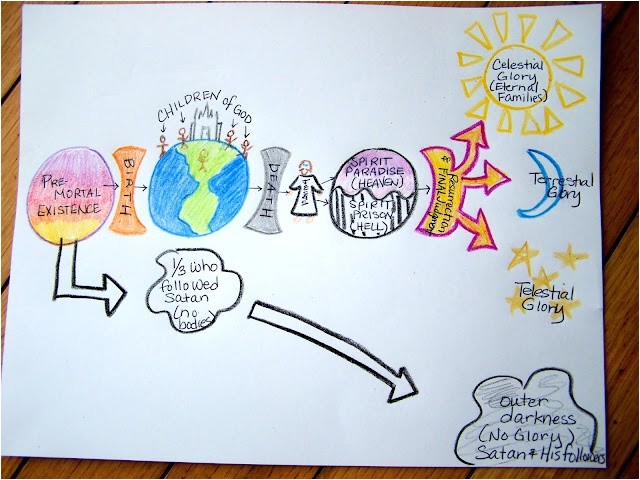 CHILDREN of GOD
PRE-
MORTAL
EXISTENCE
BIRTH
DEATH
SPIRIT
PARADISE
(HEAVEN)
SPIRIT
PRISON
(HELL)
Resurrection
& FINAL Judgment
Celestial
Glory
(Eternal
Families)
Terrestrial
Glory
Telestial
Glory
1/3 who
followed
Satan
(no
bodies)
outer
darkness
(No Glory)
Satan & His followers